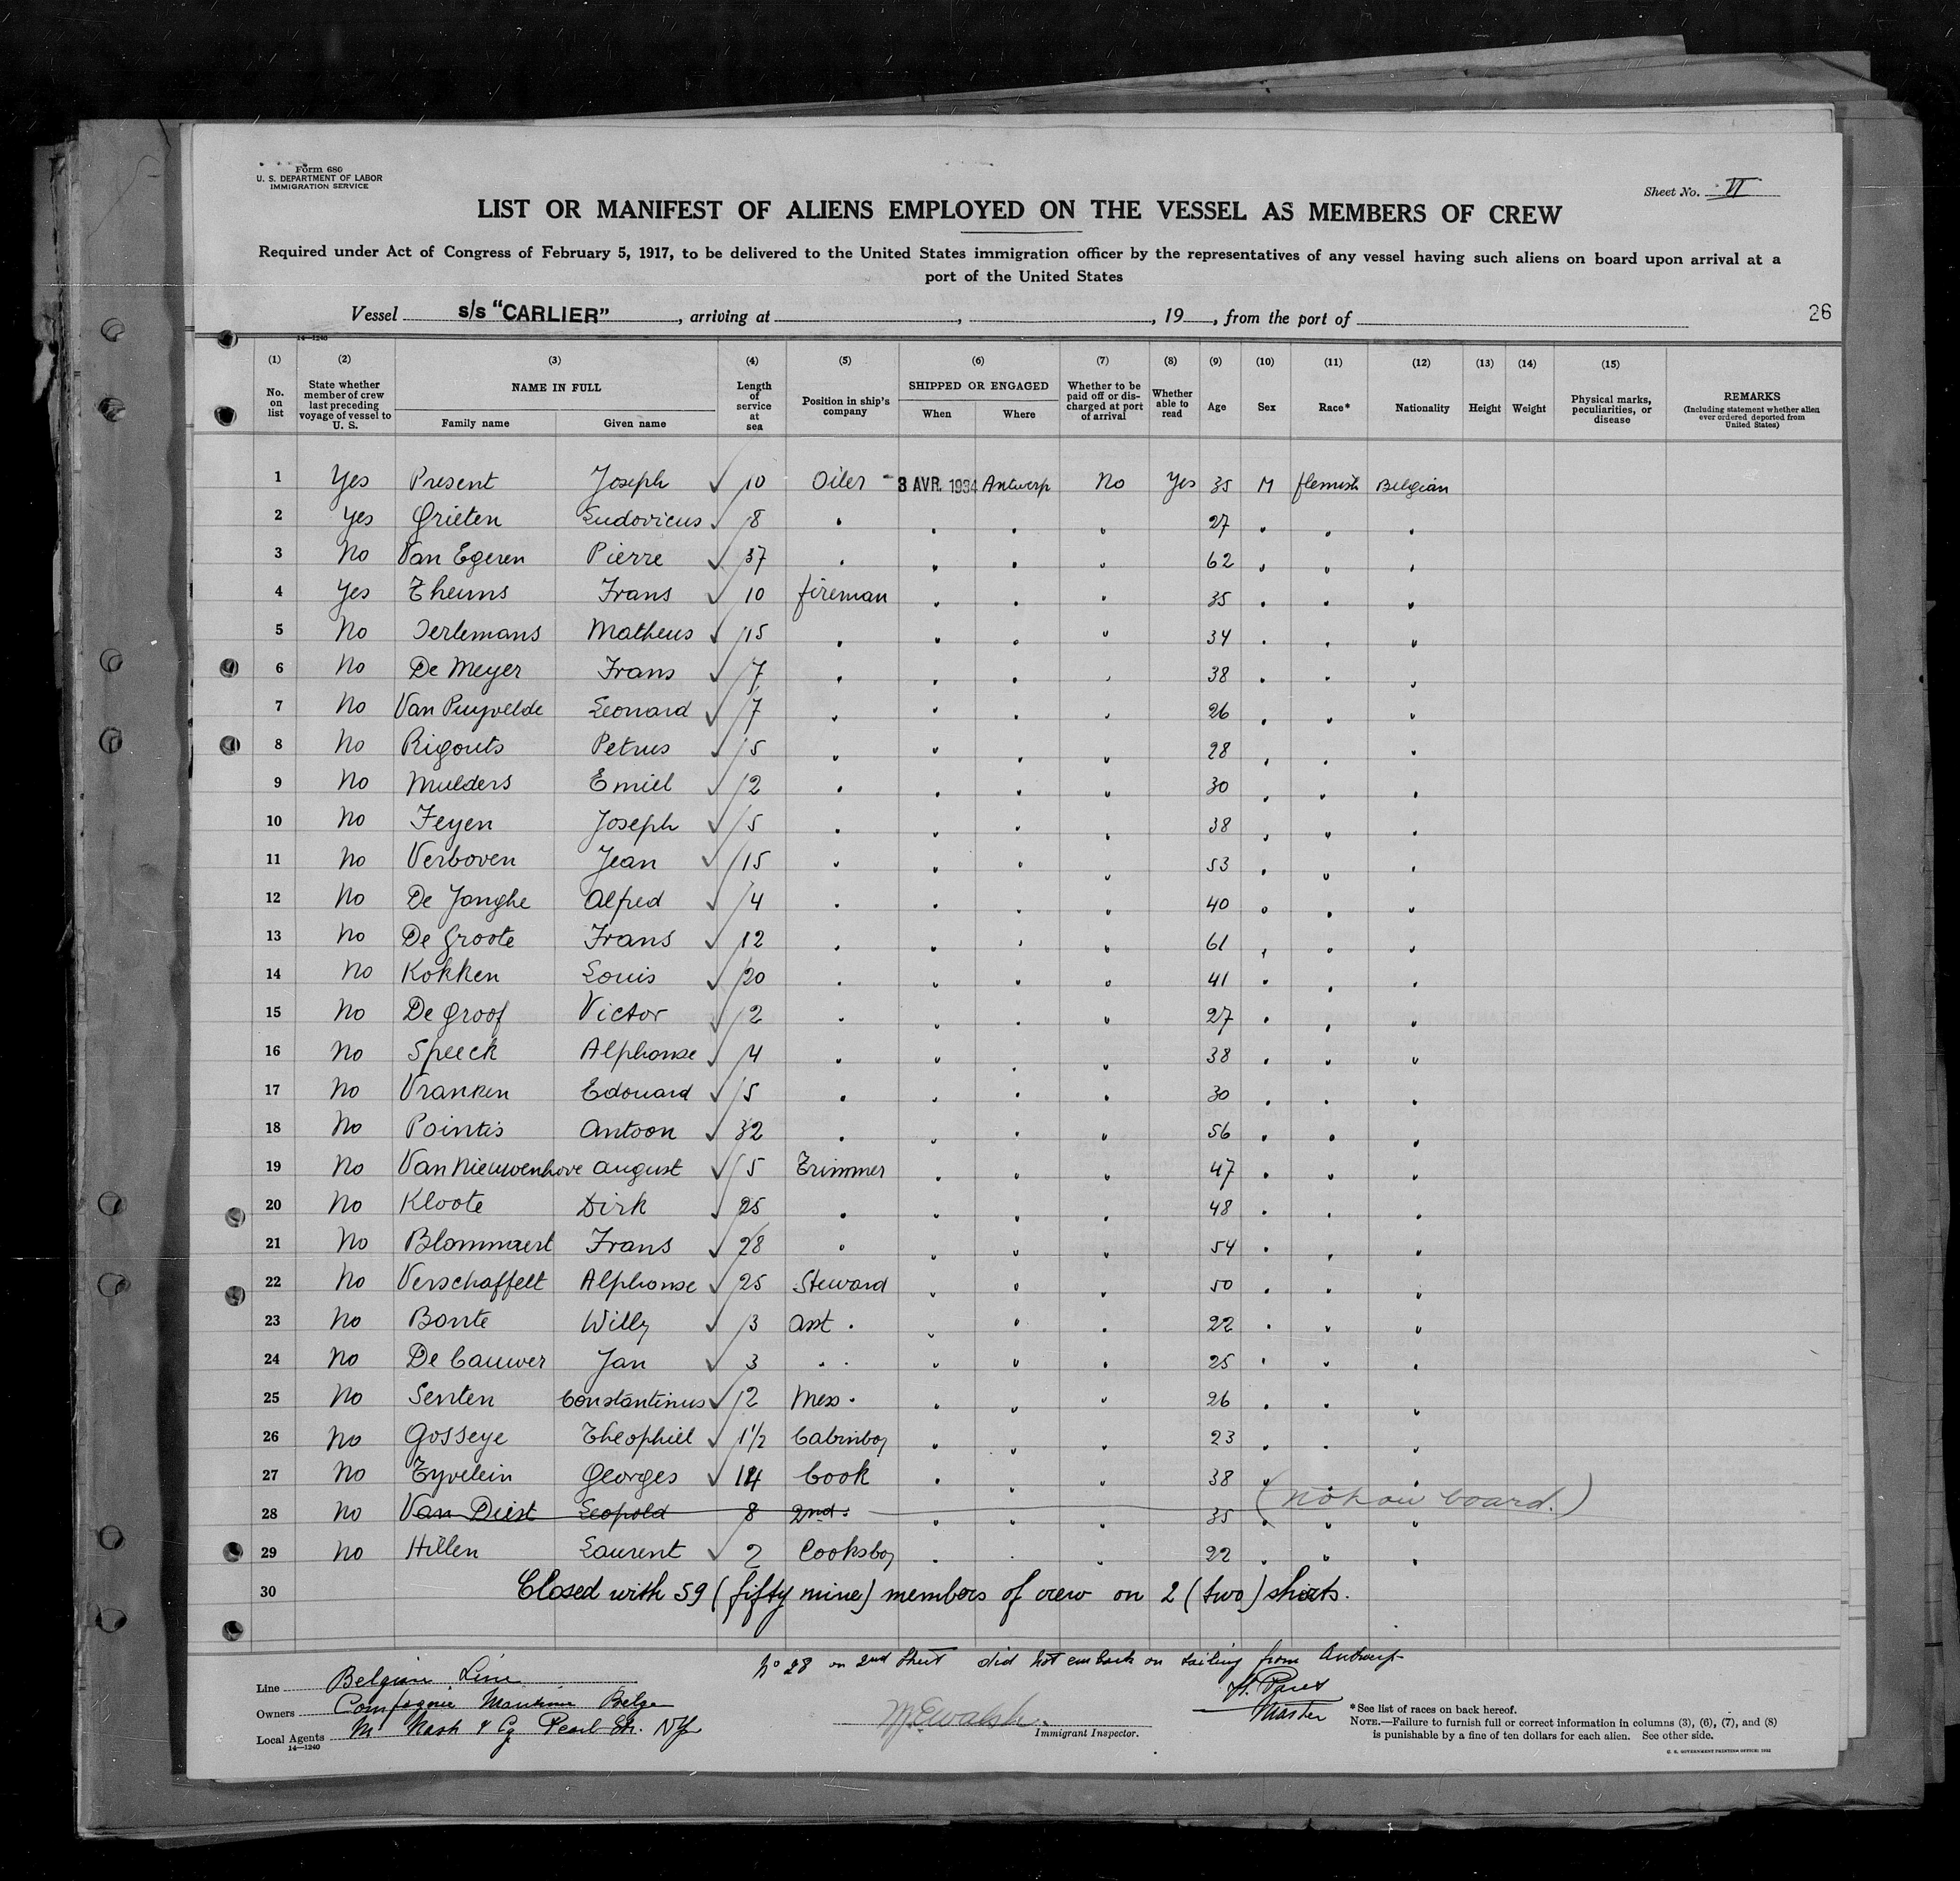 Form 680
U. S. DEPARTMENT OF LABOR
IMMIGRATION SERVICE
Sheet No. II
LIST OR MANIFEST OF ALIENS EMPLOYED ON THE VESSEL AS MEMBERS OF CREW
Required under Act of Congress of February 5, 1917, to be delivered to the United States immigration officer by the representatives of any vessel having such aliens on board upon arrival at a
port of the United States
Vessel s/s "CARLIER", arriving at , , 19 , from the port of 26
14—1240
(1) (2) (3) (4) (5) (6) (7) (8) (9) (10) (11) (12) (13) (14) (15)
No. on list State whether member of crew last preceding voyage of vessel to U. S. NAME IN FULL Family name Given name Length of service at sea Position in ship's company SHIPPED OR ENGAGED When Where Whether to be paid off or discharged at port of arrival Whether able to read Age Sex Race* Nationality Height Weight Physical marks, peculiarities, or disease REMARKS (Including statement whether alien ever ordered deported from United States)
1 Yes Present Joseph ✓ 10 Oiler - 3 AVR. 1934 Antwerp No Yes 35 M flemish Belgian
2 Yes Grieten Ludovicus ✓ 8 " " " " 27 " " "
3 No Van Egeren Pierre ✓ 37 " " " " 62 " " "
4 Yes Theums Frans ✓ 10 fireman " " " 35 " " "
5 No Terlemans Matheus ✓ 15 " " " " 34 " " "
6 No De Meyer Frans ✓ 7 " " " " 38 " " "
7 No Van Puyvelde Leonard ✓ 7 " " " " 26 " " "
8 No Rigouts Petrus ✓ 5 " " " " 28 " " "
9 No Mulders Emiel ✓ 2 " " " " 30 " " "
10 No Feyen Joseph ✓ 5 " " " " 38 " " "
11 No Verboven Jean ✓ 15 " " " " 53 " " "
12 No De Jonghe Alfred ✓ 4 " " " " 40 " " "
13 No De Groote Frans ✓ 12 " " " " 61 " " "
14 No Kokken Louis ✓ 20 " " " " 41 " " "
15 No De Groof Victor ✓ 2 " " " " 27 " " "
16 No Speeck Alphonse ✓ 4 " " " " 38 " " "
17 No Vranken Edouard ✓ 5 " " " " 30 " " "
18 No Pointis Antoon ✓ 32 " " " " 56 " " "
19 No Van Nieuwenhove August ✓ 5 Trimmer " " " 47 " " "
20 No Kloote Dirk ✓ 25 " " " " 48 " " "
21 No Blommaert Frans ✓ 28 " " " " 54 " " "
22 No Verschaffelt Alphonse ✓ 25 Steward " " " 50 " " "
23 No Bonte Willy ✓ 3 Asst " " " " 22 " " "
24 No De Cauwer Jan ✓ 3 " " " " " 25 " " "
25 No Senten Constantinus ✓ 2 Mess " " " " 26 " " "
26 No Gosseye Theophiel ✓ 1½ Cabinboy " " " 23 " " "
27 No Tyvelein Georges ✓ 14 Cook " " " 38 " "
28 No Van Diest Leopold 8 2nd " " " " 35 " " " (not on board.)
29 No Hillen Laurent ✓ 2 Cooksboy " " " 22 " " "
30 Closed with 59 (fifty nine) members of crew on 2 (two) sheets.
No 28 on 2nd sheet did not embark on sailing from Antwerp
Line Belgian Line
Owners Compagnie Maritime Belge
Local Agents M Nash & Cy Pearl Str. NY
14—1240
Master
W.E. Walsh.
Immigrant Inspector.
*See list of races on back hereof.
NOTE.—Failure to furnish full or correct information in columns (3), (6), (7), and (8)
is punishable by a fine of ten dollars for each alien. See other side.
U. S. GOVERNMENT PRINTING OFFICE: 1932